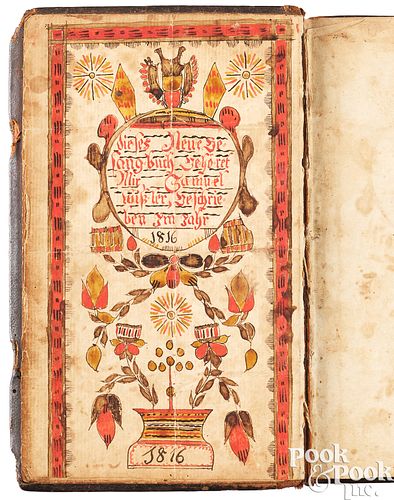 dieses Neue Ge
sangbuch Gehöret
Mir, Samuel
Wißler, Geschrie
ben Im Jahr
1816
1816
Pook
& Pook
Inc.